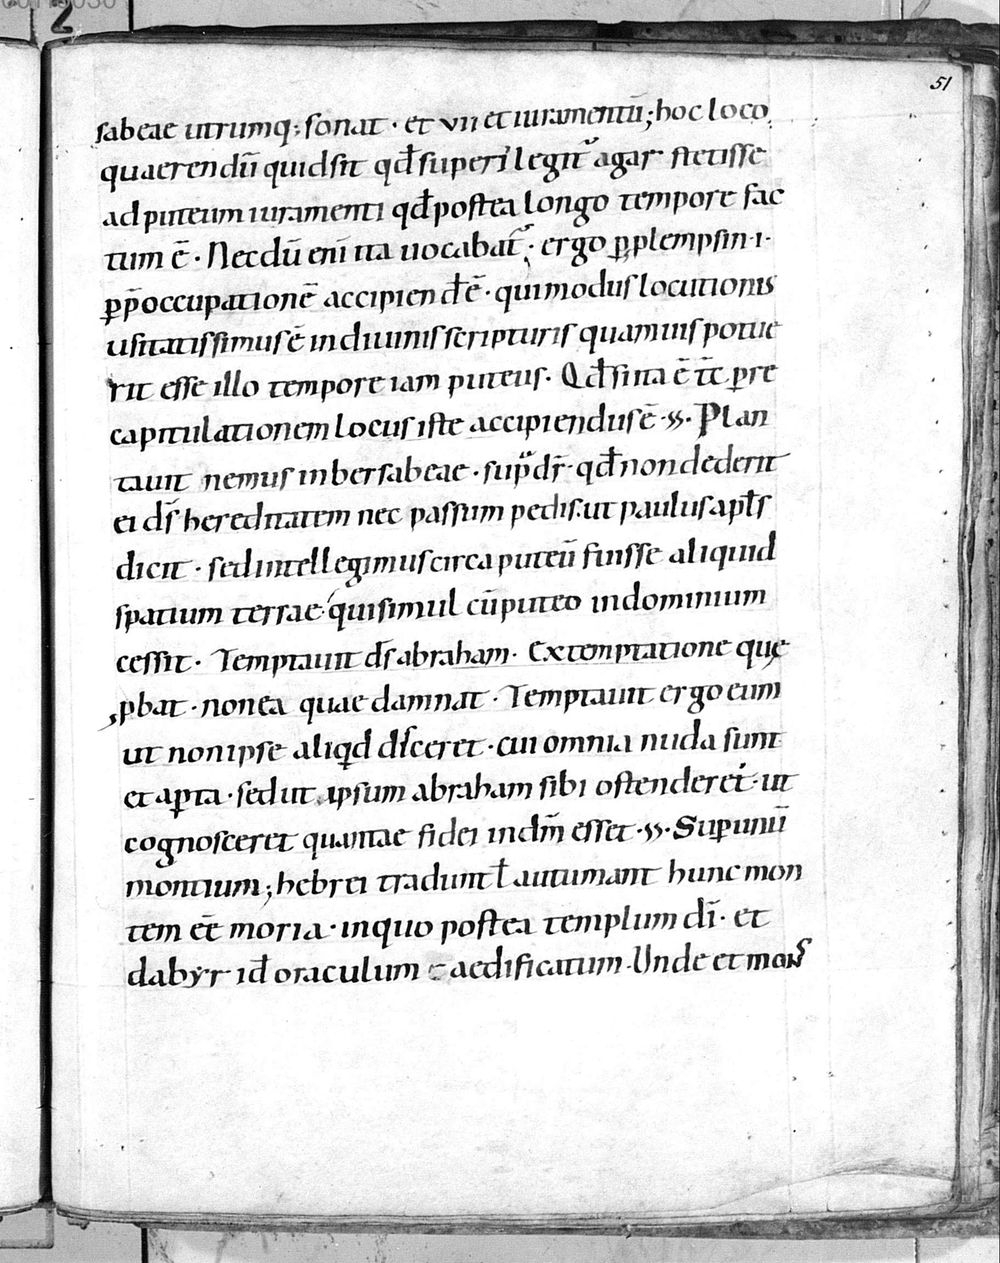 51
sabeae utrumq; sonat · et vii et iuramentū; hoc loco
quaerendū quid sit qđ superi᷑ legit᷑ agar stetisse
ad puteum iuramenti qđ postea longo tempore fac
tum ē · Necdū eni ita uocabat᷑ · ergo ꝑ plempsin ·i·
ꝑp̄occupationē accipiendē · qui modus locutionis
usitatissimus ē in diuinis scripturis quamuis potue
rit esse illo tempore iam puteus · Qđ si ita ē tc̄ pre
capitulationem locus iste accipiendus ē · Plan
tauit nemus in bersabeae · sup̄ dr̄ · qđ non dederit
ei ds̄ hereditatem nec passum pedis · ut paulus apłs
dicit · sed intellegimus circa puteū fuisse aliquid
spatium terrae qui simul cū puteo in dominium
cessit · Temptauit ds̄ abraham · Ex temptatione quę
ꝓbat · non ea quae damnat · Temptauit ergo eum
ut non ipse aliqđ disceret · cui omnia nuda sunt
et aꝑta · sed ut ipsum abraham sibi ostenderet · ut
cognosceret quantae fidei in dm̄ esset · Suꝑ unū
montium; hebrei tradunt ł autumant hunc mon
tem eē moria · in quo postea templum di̅ · et
dabyr id oraculum aedificatum · Unde et mons